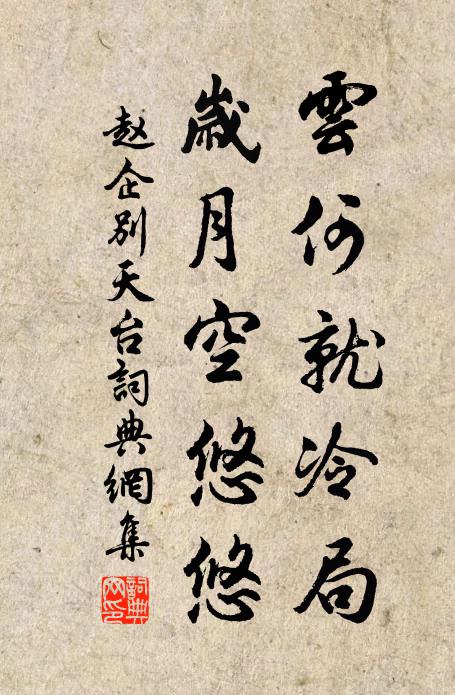 雲何就冷局
歲月空悠悠
赵企别天台詞典網集
詞典網印